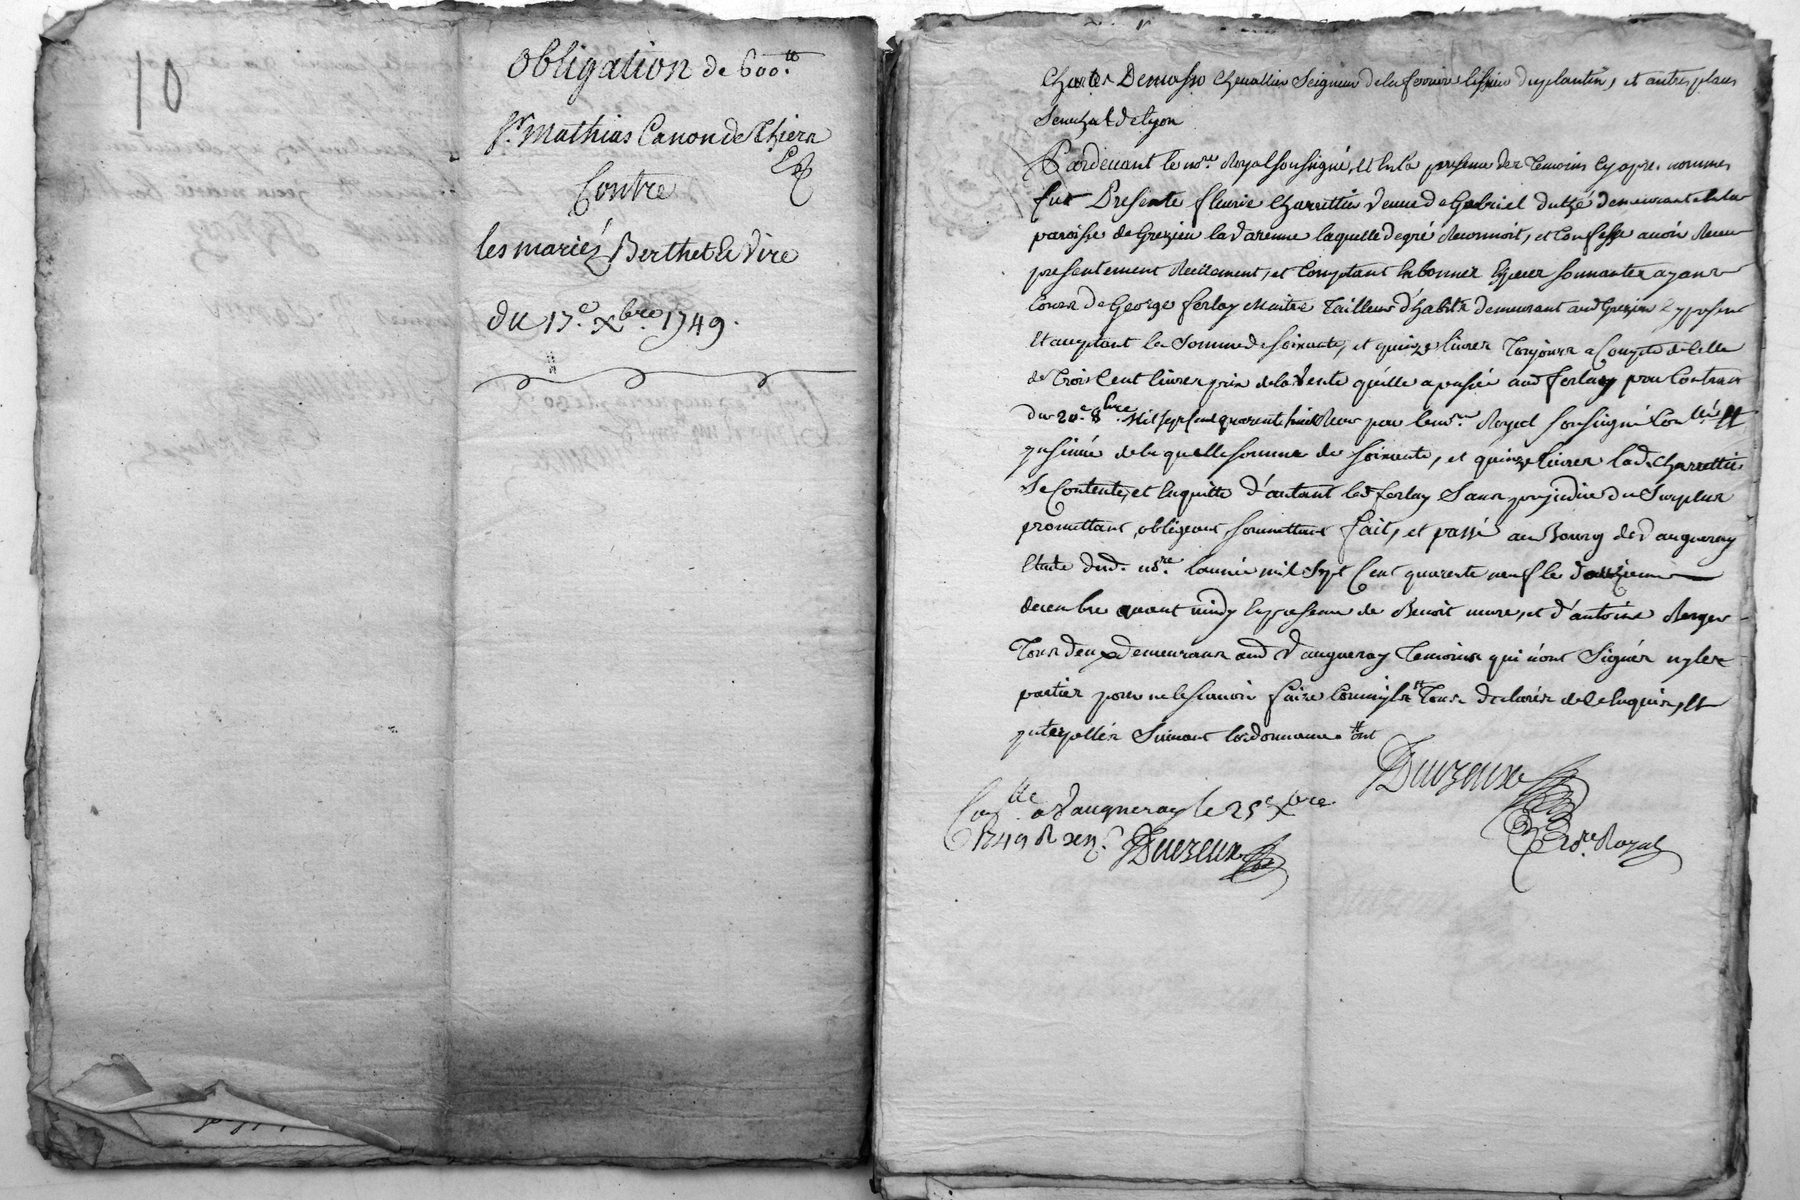 10
Obligation de 600.tt
Sr. Mathias Canon de Thiern
Contre
les mariéz Berthet & Vire
du 17.e xbre. 1749.
Charles Demasso Chevallier Seigneur de la ferriere lissieu duplantin, et autres places
Senechal de lyon
Pardevant le nore Royal soussigné, et en la presence des temoins cy apres nommes
fut Presente fleurie Charrettier veuve de Gabriel duthé demeurante en la
paroisse de Grezieu la Varenne laquelle de gré Reconnoit, et Confesse avoir Receu
presentement Reellement, et Comptant en bonnes Especes sonnantes ayant
Cours de George ferlay Maitre Tailleur d'habits demeurant aud Grezieu cy present
et acceptant la Somme de soixante, et quinze livres Toujours a Compte de Celle
de Trois Cent livres prix de la Vente qu'elle a passée aud ferlay par Contract
du 20.e 8bre Mil sept cent quarente huit Receu par le nore Royal soussigné Con.llé et
insinué de la quelle somme de soixante, et quinze livres lad. Charrettier
se Contente, et en quitte d'autant led ferlay Sans prejudice du Surplus
promettant, obligeant soumettant fait, et passé au Bourg de Vaugneray
Etude dud. nore l'année mil Sept Cent quarente neuf le douzieme
decembre avant midy en presence de Benoit mure, et d'antoine Berger
Tous deux demeurans aud Vaugneray Temoins qui n'ont Signés ny les
parties pour ne le scavoir faire Comm'ils tt Tous declarés de ce Enquis, et
interpellés Suivant l'ordonnance tt ont
Duvzeux
nore Royal
Con.lle a Vaugneray le 25e Xbre
1749 R
Duvzeux